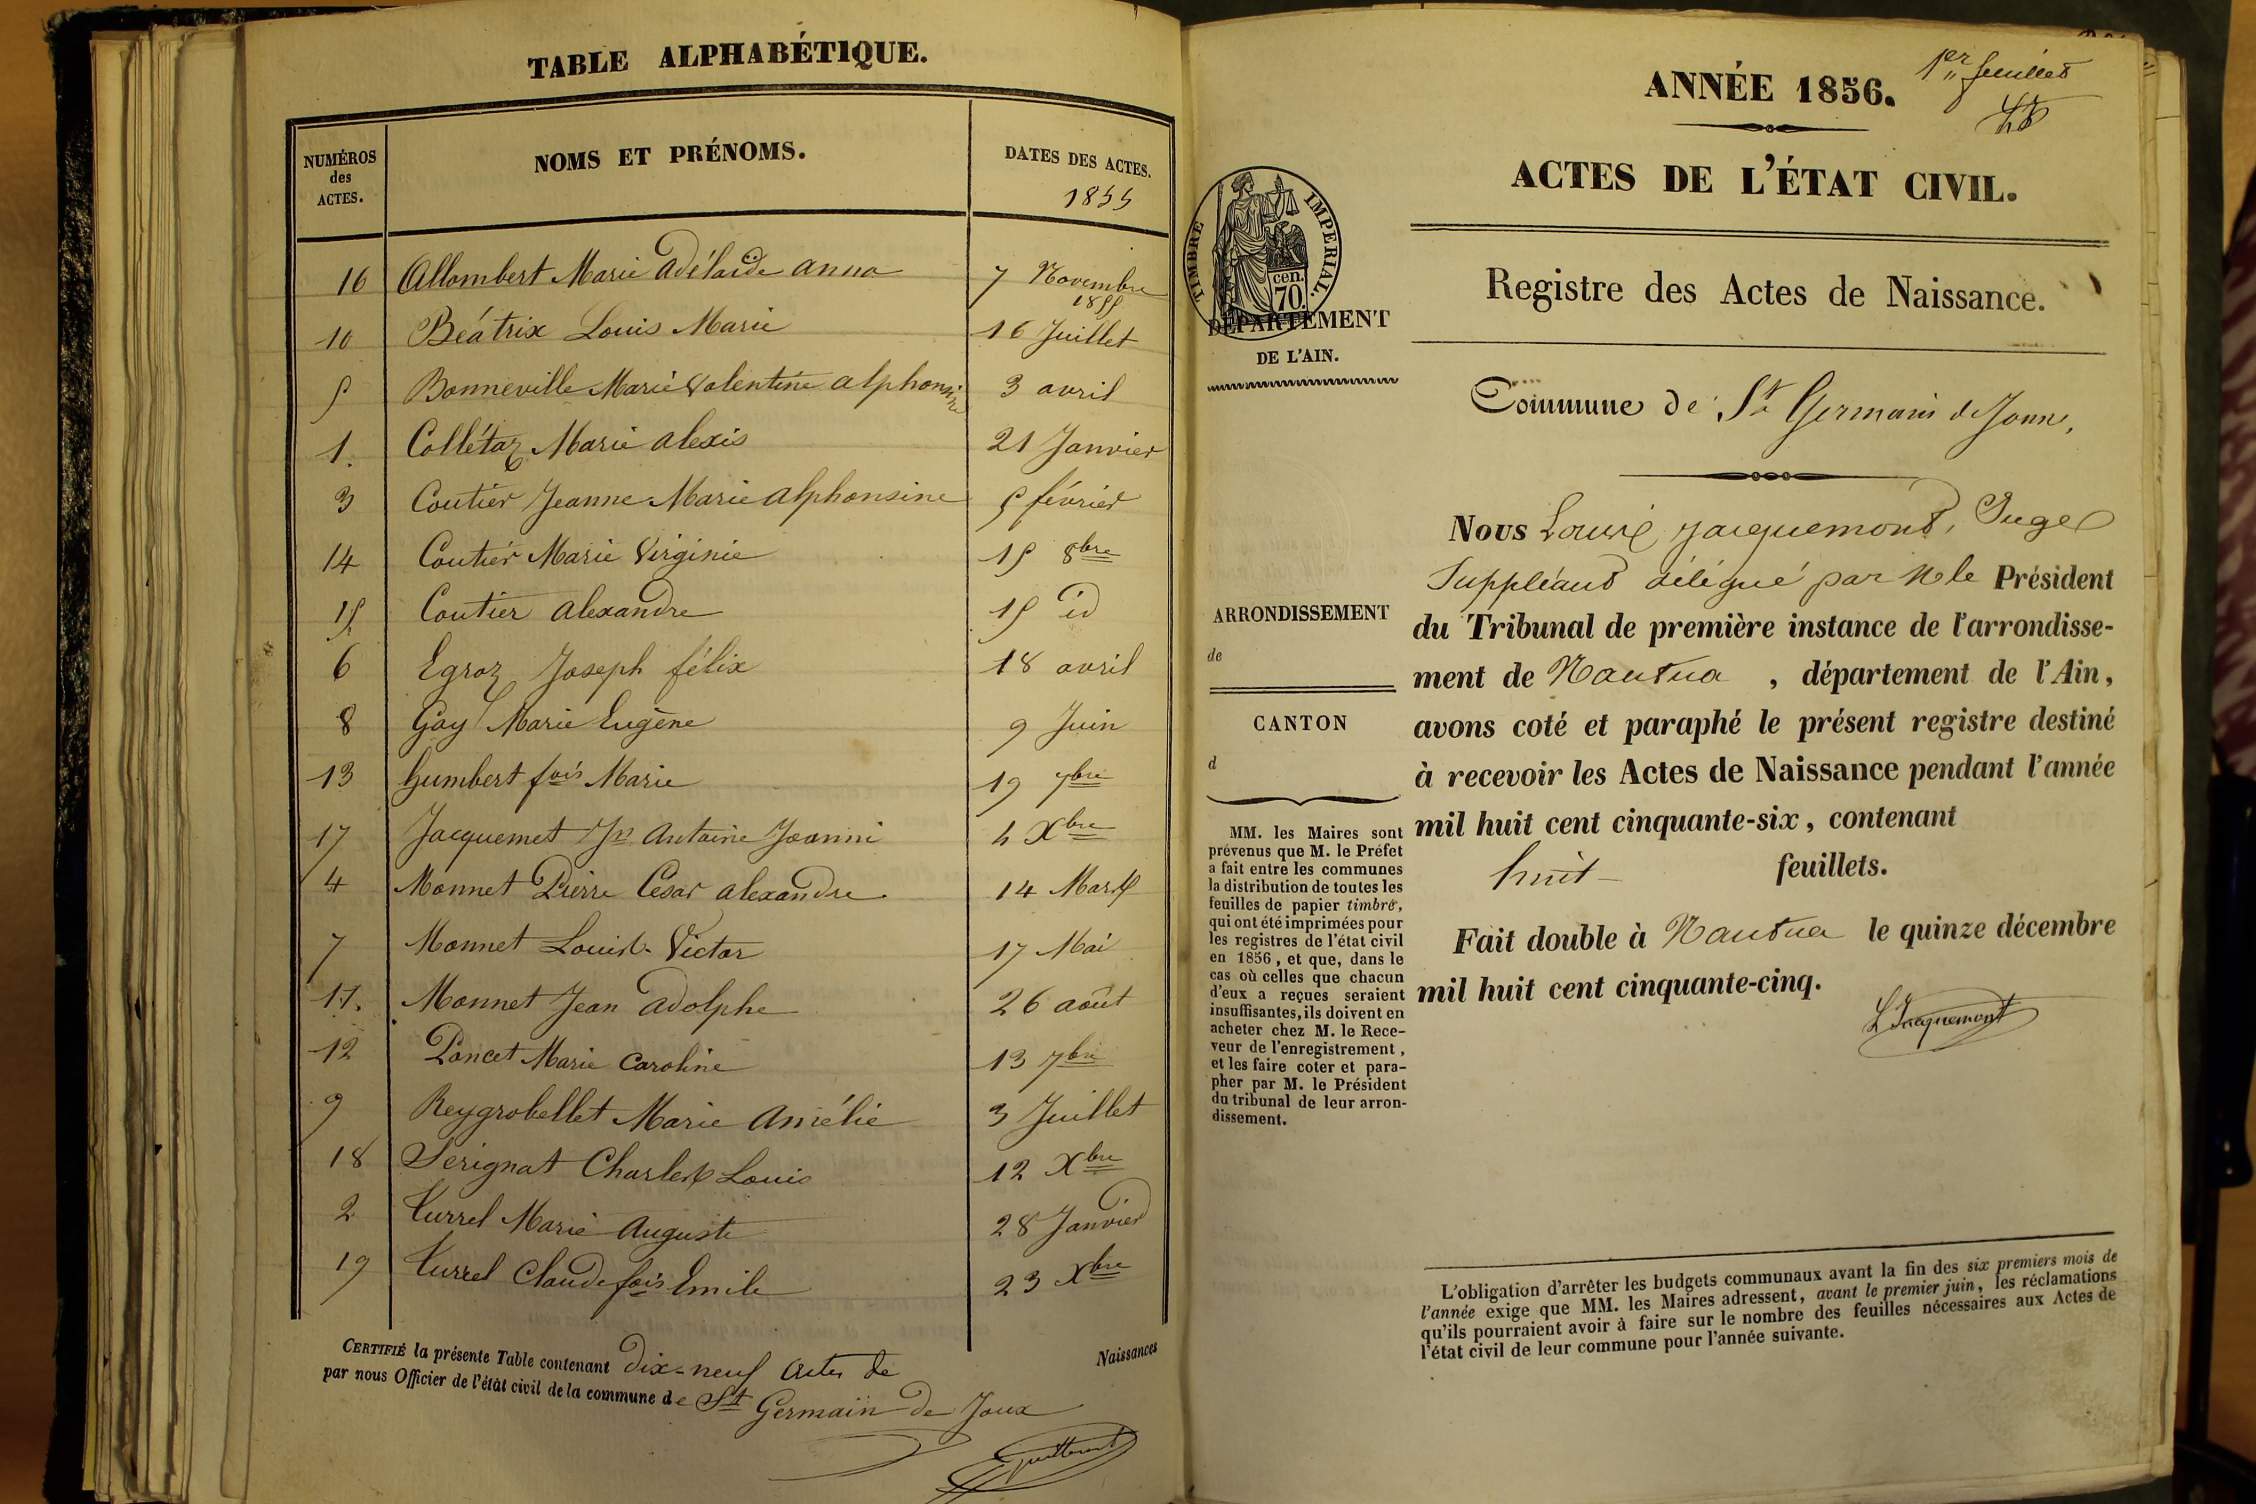 TABLE ALPHABÉTIQUE.
NUMÉROS des ACTES.
NOMS ET PRÉNOMS.
DATES DES ACTES.
1855
16 Allombert Marie Adélaïde anna 7 Novembre 1855
10 Béatrix Louis Marie 16 Juillet
5 Bonneville Marie Valentine alphonsine 3 avril
1. Collétaz Marie alexis 21 Janvier
3 Coutier Jeanne Marie alphonsine 5 février
14 Coutier Marie Virginie 15 8bre
15 Coutier alexandre 15 id
6 Egroz Joseph félix 18 avril
8 Gay Marie Eugène 9 Juin
13 Humbert fois Marie 19 7bre
17 Jacquemet Jn Antoine Joanni 4 Xbre
4 Monnet Pierre César alexandre 14 Mars
7 Monnet Louis Victor 17 Mai
11. Monnet Jean adolphe 26 août
12 Poncet Marie Caroline 13 7bre
9 Reygrobellet Marie Amélie 3 Juillet
18 Sérignat Charles Louis 12 Xbre
2 Turrel Marie Auguste 28 Janvier
19 Turrel Claude fois Emile 23 Xbre
CERTIFIÉ la présente Table contenant dix-neuf actes de Naissances
par nous Officier de l'état civil de la commune de St Germain de Joux
1er feuillet
ANNÉE 1856.
ACTES DE L'ÉTAT CIVIL.
Registre des Actes de Naissance.
TIMBRE IMPERIAL.
cen. 70.
DÉPARTEMENT
DE L'AIN.
Commune de St Germain de Joux,
Nous Louis Jacquemont, Juge
Suppléant délégué par M le Président
du Tribunal de première instance de l'arrondisse-
ment de Nantua , département de l'Ain,
avons coté et paraphé le présent registre destiné
à recevoir les Actes de Naissance pendant l'année
mil huit cent cinquante-six, contenant
huit feuillets.
Fait double à Nantua le quinze décembre
mil huit cent cinquante-cinq.
L Jacquemont
ARRONDISSEMENT
de
CANTON
d
MM. les Maires sont
prévenus que M. le Préfet
a fait entre les communes
la distribution de toutes les
feuilles de papier timbré,
qui ont été imprimées pour
les registres de l'état civil
en 1856, et que, dans le
cas où celles que chacun
d'eux a reçues seraient
insuffisantes, ils doivent en
acheter chez M. le Rece-
veur de l'enregistrement,
et les faire coter et para-
pher par M. le Président
du tribunal de leur arron-
dissement.
L'obligation d'arrêter les budgets communaux avant la fin des six premiers mois de
l'année exige que MM. les Maires adressent, avant le premier juin, les réclamations
qu'ils pourraient avoir à faire sur le nombre des feuilles nécessaires aux Actes de
l'état civil de leur commune pour l'année suivante.